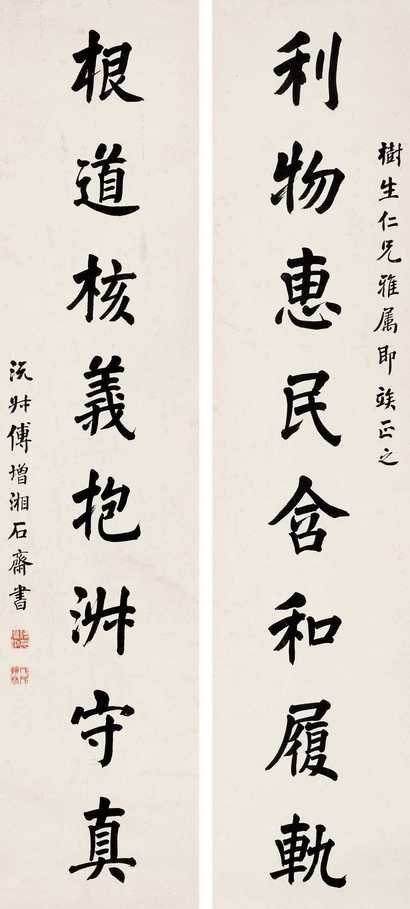 樹生仁兄雅属即竢正之
利物惠民含和履軌
根道核義抱淑守真
沅叔傅增湘石齋書